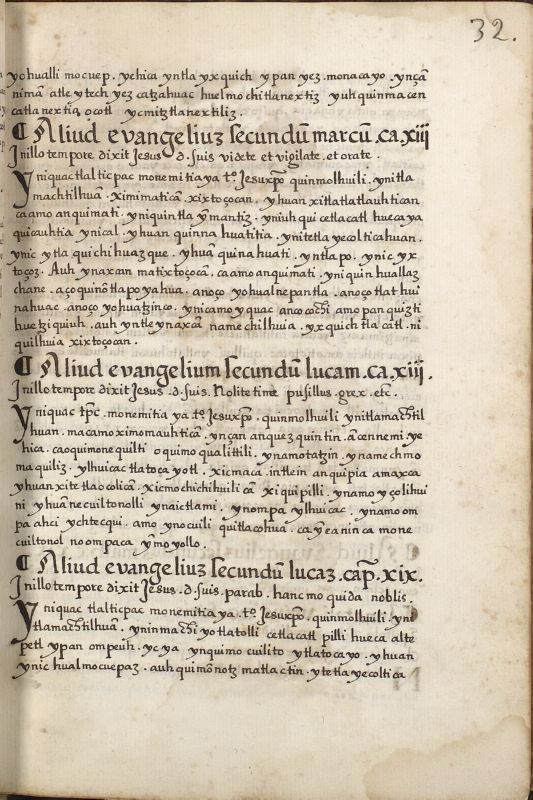 32.
yohualli mocuep. ychica yntla yxquich ypan yez. monacayo. ynçã
nimã atle ytech yez catzahuac huel mochitlanextiz yuhquinmacen
catlanextia, ocotl ycmitztlanextiliz.
¶ Aliud evangeliuz secundũ marcũ. ca. xiij
Inillo tempore dixit Jesus .d. suis videte et vigilate. et orate.
yniquac tlalticpac monemitia ya to. Jesuxpo quinmolhuili. ynitla
machtilhuã. ximimatica. xixtoçocan. yhuan xitlatlatlauhtican
ca amo anquimati. yniquintla ymantiz. yniuh qui cetlacatl huecaya
quicauhtia ynical. yhuan quinnahuatitia. ynitetlayecolticahuan.
ynic ytla quichihuazque. yhuã quinahuati. yntlapo. ynic yx
toçoz. Auh ynaxcan matixtoçocã. ca amo anquimati. yniquin huallaz
chane. aço quinõtlapoyahua. anoço yohualnepantla. anoço tlathui
nahuac. anoço yohuatzinco. ynicamo yquac anco cochi amopanquizti
huetziquiuh. auh yntle ynaxcã namechilhuia. yxquich tlacatl. ni
quilhuia xixtoçocan.
¶ Aliud evangelium secundũ lucam. ca. xiij.
Inillo tempore dixit Jesus .d. suis. Nolite time pusillus grex. etc.
yniquac tpc. monemitia ya to. Jesuxpo. quinmolhuili ynitlamachtil
yhuan. macamo ximomauhticã. ynçan anquezquintin. ãcennemi ye
hica. caoquimonequilti oquimoqualittili. ynamotatzin. ynamechmo
maquiliz. ylhuicac tlatocayotl. xicmaca intlein anquipia amaxca
yhuan xitetlaocolicã. xicmochichihuilicã xiquipilli. ynamo yçolihui
ni yhuã necuiltonolli ynaictlami. ynompa ylhuicac. ynamo om
pa ahci ychtecqui. amo ynocuili quitlacohua. ca yeeanin ca mone
cuiltonol no ompaca ymoyollo.
¶ Aliud evangeliuz secundũ lucaz. cap. xix.
Inillo tempore dixit Jesus .d. suis. parab. hanc mo quida nobilis.
yniquac tlalticpac monemitia ya. to. Jesuxpo. quinmolhuili. yni
tlamachtilhuã. yninmachiyotlatolli cetlacatl pilli hueca alte
petl ypan ompeuh. ycya ynquimocuilito ytlatocayo. yhuan
ynic hualmocuepaz. auh quimõnotz matlactin. ytetlayecoltica